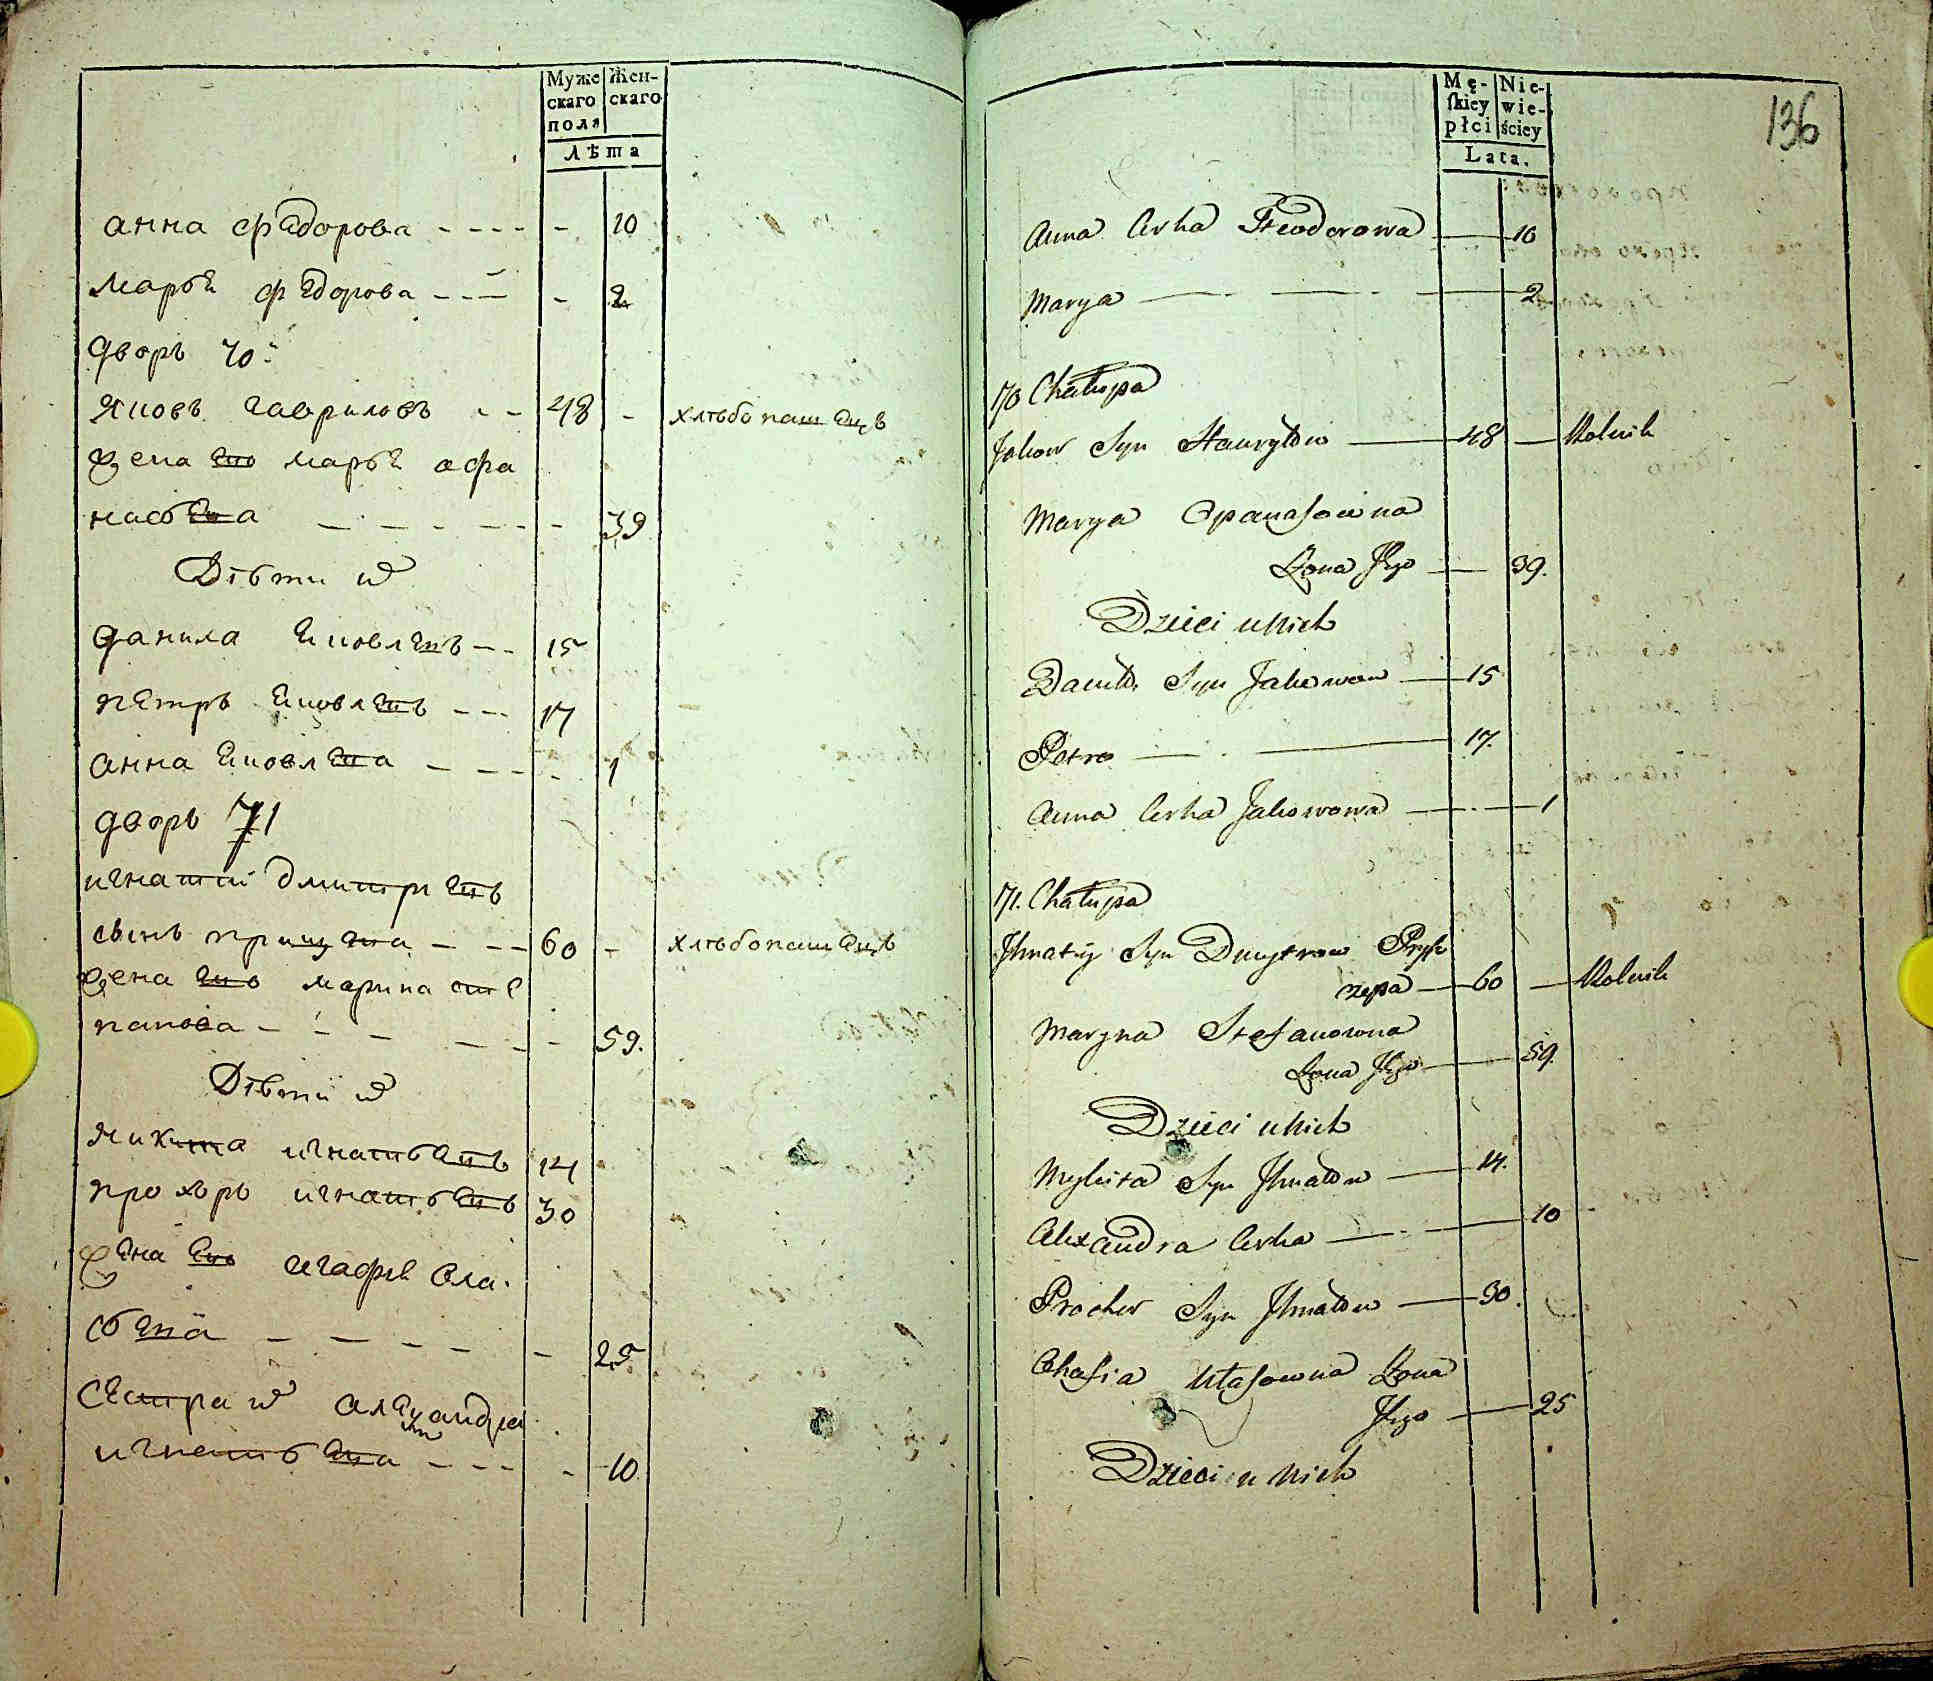 Муже
скаго
пола
Жен-
скаго
Лѣта
анна федорова - - - - - 10
марья федорова - - - - 2
дворъ 70й
яковъ гавриловъ - - 48 - хлѣбопашецъ
жена ево марья афа
насьева - - - - - - 39
Дѣти их
данила яковлевъ - - 15
петръ яковлевъ - - - 17
анна яковлева - - - - - 1
дворъ 71
игнатий дмитриевъ
сынъ - - - 60 - хлѣбопашецъ
жена ево марина сте
панова - - - - - - 59.
Дѣти их
микита игнатьевъ 14
прохоръ игнатьевъ 30
жена ево агафья вла
сьева - - - - - 25
сестра их александра
игнатьева - - - - 10
136
Mę-
skiey
płci
Nie-
wie-
ściey
Lata.
Anna Corka Fteodorowa — 10
Marya — — — 2
70 Chałupa
Jakow Syn Hauryłow — 48 — Rolnik
Marya Opanasowna
Żona Jego — 39.
Dzieci u Nich
Daniło Syn Jakowow — 15
Petro — — 17.
Anna Corka Jakowowa — 1
71. Chałupa
Ihnatij Syn Dmytrow Pryk
czepa — 60 — Rolnik
Maryna Stefanowna
Żona Jego — 59.
Dzieci u Nich
Mykita Syn Ihnatow — 14.
Alexandra Corka — 10
Prochor Syn Ihnatow — 30.
Ohafia Ułasowna Żona
Jego — 25
Dzieci u Nich